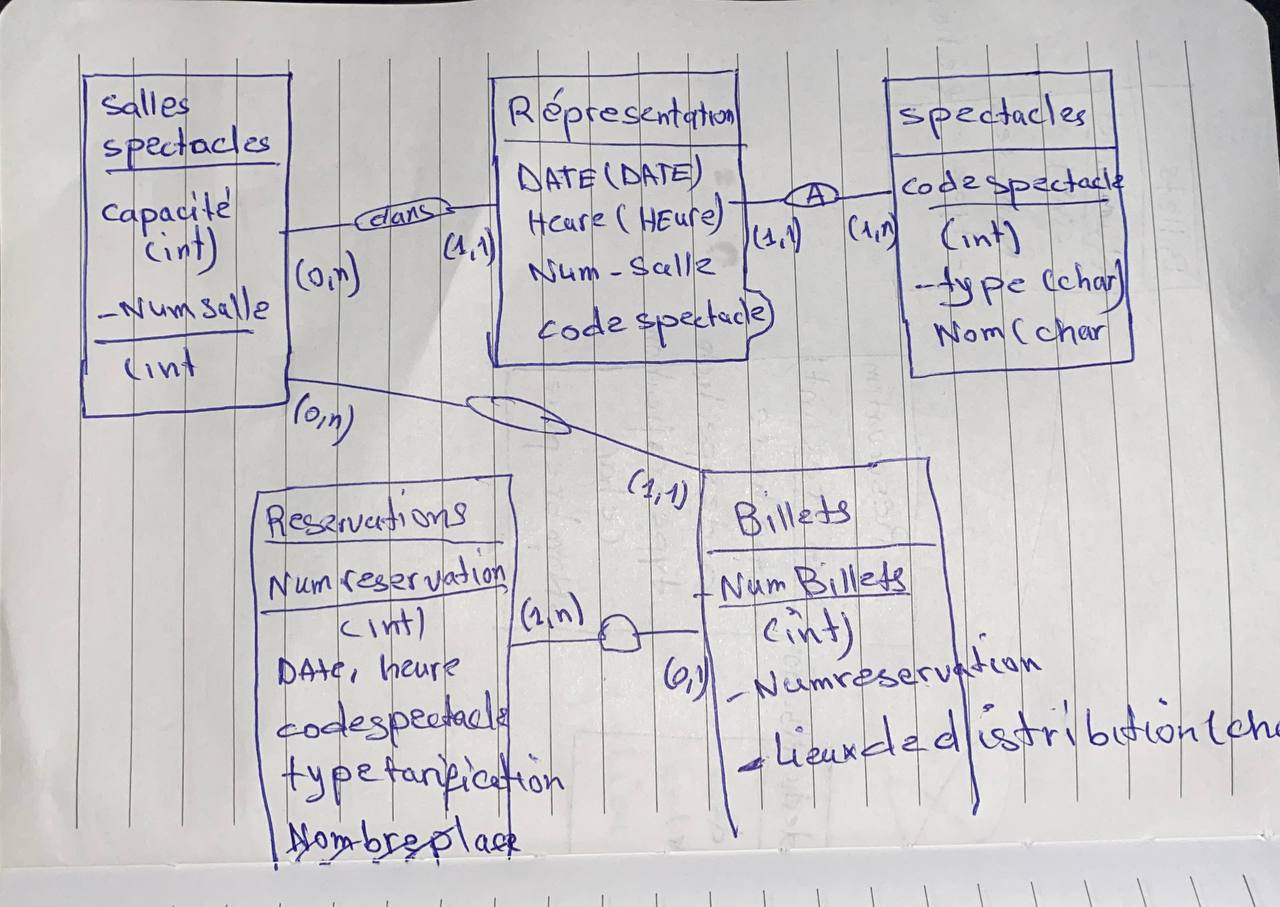 Salles
spectacles
capacité
(int)
-Numsalle
(int
dans
(0,n)
(1,1)
Répresentation
DATE (DATE)
Heure (HEure)
Num-Salle
code spectacle)
A
(1,1)
(1,n)
spectacles
code spectacle
(int)
-type (char)
Nom (char
(0,n)
(1,1)
Reservations
Numreservation
(int)
DAte, heure
codespectacle
typetarification
Nombreplace
(1,n)
(0,1)
Billets
-NumBillets
(int)
-Numreservation
-Lieuxdedistribution (cha